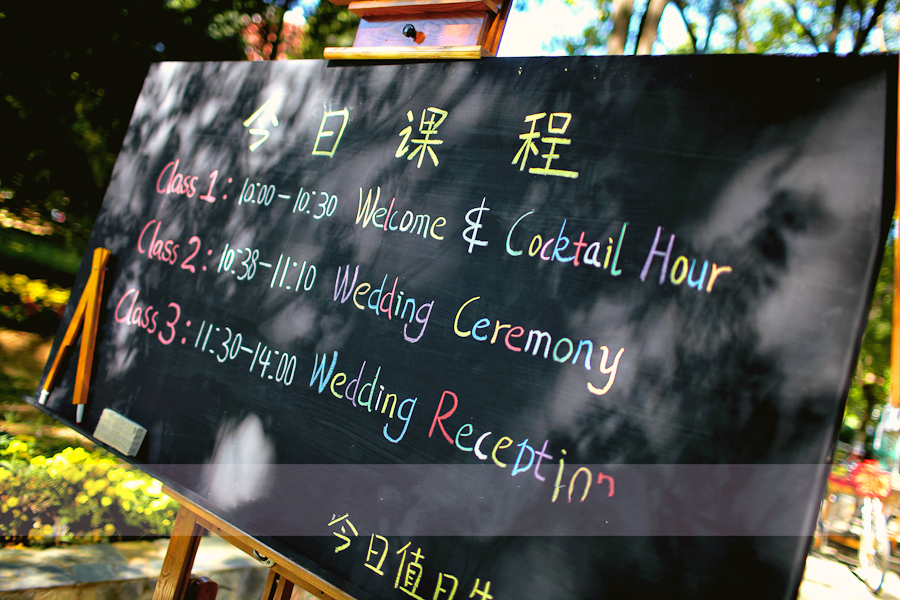 今日课程
Class 1: 10:00-10:30 Welcome & Cocktail Hour
Class 2: 10:38-11:10 Wedding Ceremony
Class 3: 11:30-14:00 Wedding Reception
今日值日生